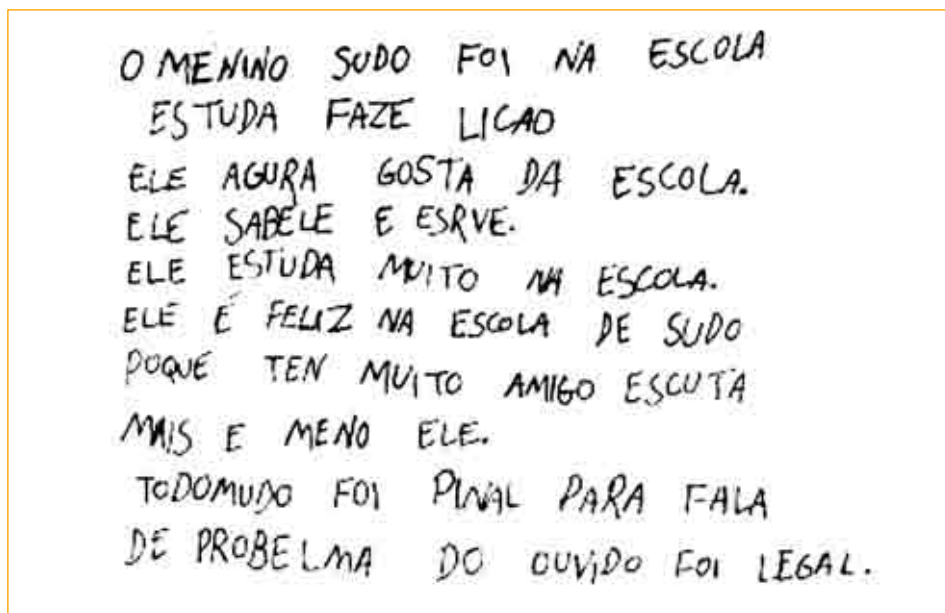 O MENINO SUDO FOI NA ESCOLA
ESTUDA FAZE LICAO
ELE AGURA GOSTA DA ESCOLA.
ELE SABELE E ESRVE.
ELE ESTUDA MUITO NA ESCOLA.
ELE É FELIZ NA ESCOLA DE SUDO
POQUE TEN MUITO AMIGO ESCUTA
MAIS E MENO ELE.
TODOMUDO FOI PINAL PARA FALA
DE PROBELMA DO OUVIDO FOI LEGAL.